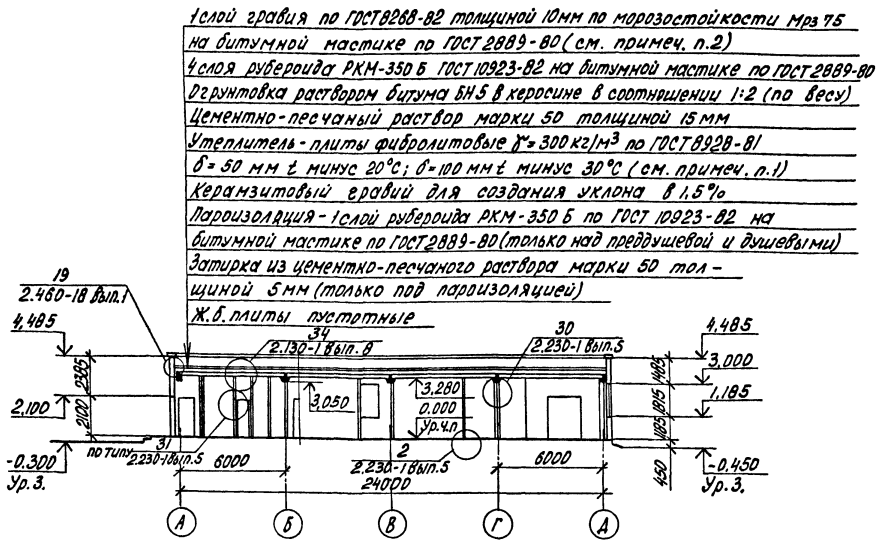 1 слой гравия по ГОСТ 8268-82 толщиной 10мм по морозостойкости Мрз 75
на битумной мастике по ГОСТ 2889-80 (см. примеч. п.2)
4 слоя рубероида РКМ-350 Б ГОСТ 10923-82 на битумной мастике по ГОСТ 2889-80
Огрунтовка раствором битума БН5 в керосине в соотношении 1:2 (по весу)
Цементно-песчаный раствор марки 50 толщиной 15 мм
Утеплитель-плиты фибролитовые γ=300 кг/м³ по ГОСТ 8928-81
б=50 мм t минус 20°С; б=100 мм t минус 30°С (см. примеч. п.1)
Керамзитовый гравий для создания уклона в 1,5%
Пароизоляция-1 слой рубероида РКМ-350 Б по ГОСТ 10923-82 на
битумной мастике по ГОСТ 2889-80 (только над преддушевой и душевыми)
Затирка из цементно-песчаного раствора марки 50 тол-
щиной 5 мм (только под пароизоляцией)
Ж.б. плиты пустотные
19
2.460-18 вып.1
34
2.130-1 вып. 8
30
2.230-1 вып.5
4,485
2,100
2385
2100
-0.300
Ур. З.
3,050
3,280
0.000
Ур.ч.п
4,485
3,000
1,185
1485
1815
1185
450
-0,450
Ур. З.
по типу
31
2.230-1 вып.5
2
2.230-1 вып.5
6000
6000
24000
А
Б
В
Г
Д